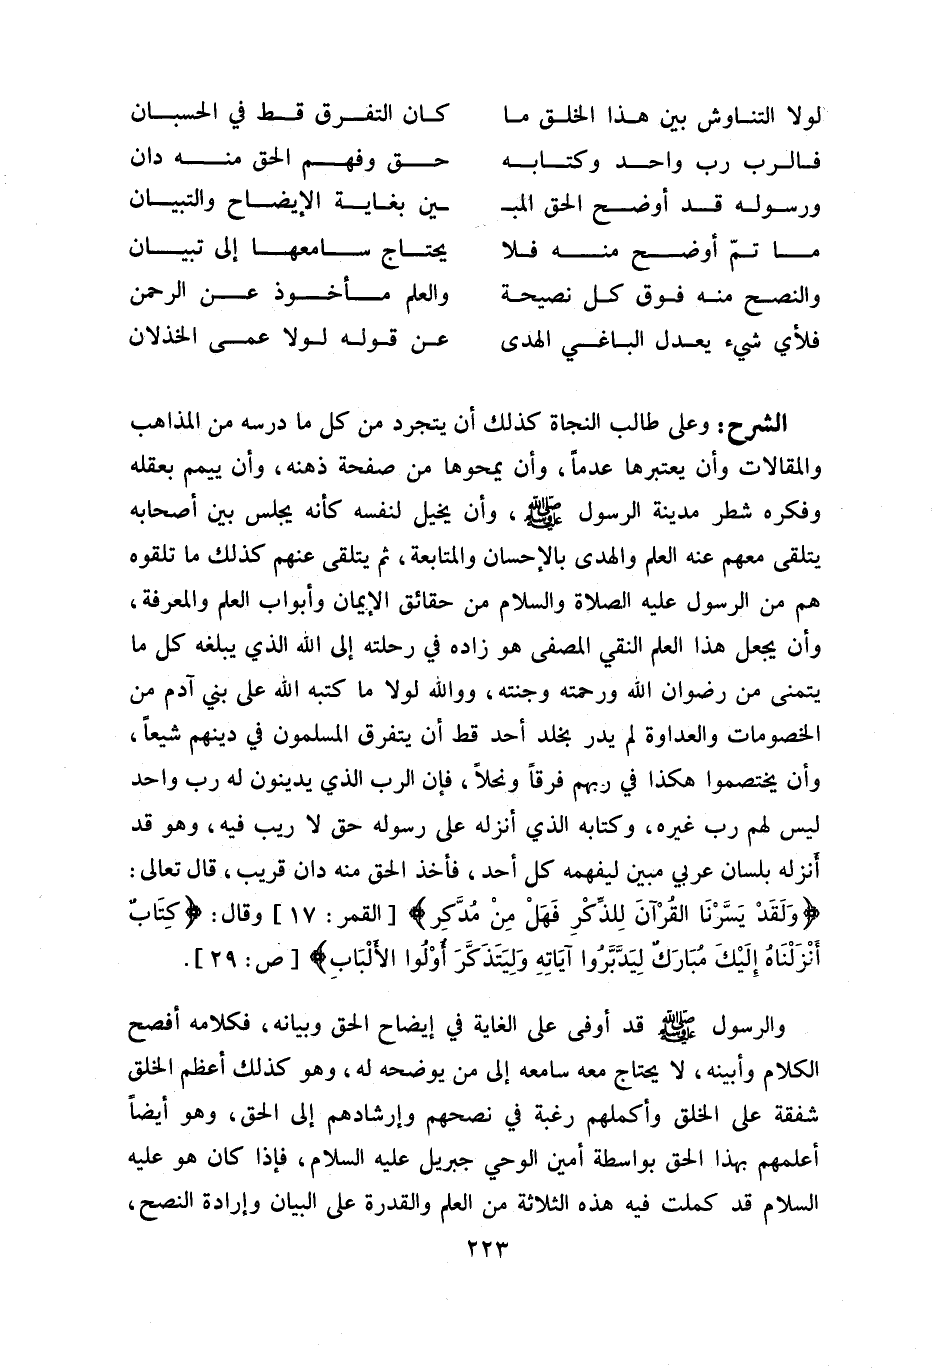 لولا التناوش بين هذا الخلق ما كان التفرق قط في الحسبان
فالرب رب واحد وكتابه حق وفهم الحق منه دان
ورسوله قد أوضح الحق المبـ ـين بغاية الإيضاح والتبيان
ما تمّ أوضح منه فلا يحتاج سامعها إلى تبيان
والنصح منه فوق كل نصيحة والعلم مأخوذ عن الرحمن
فلأي شيء يعدل الباغي الهدى عن قوله لولا عمى الخذلان
الشرح: وعلى طالب النجاة كذلك أن يتجرد من كل ما درسه من المذاهب
والمقالات وأن يعتبرها عدماً، وأن يمحوها من صفحة ذهنه، وأن ييمم بعقله
وفكره شطر مدينة الرسول ﷺ، وأن يخيل لنفسه كأنه يجلس بين أصحابه
يتلقى معهم عنه العلم والهدى بالإحسان والمتابعة، ثم يتلقى عنهم كذلك ما تلقوه
هم من الرسول عليه الصلاة والسلام من حقائق الإيمان وأبواب العلم والمعرفة،
وأن يجعل هذا العلم النقي المصفى هو زاده في رحلته إلى الله الذي يبلغه كل ما
يتمنى من رضوان الله ورحمته وجنته، ووالله لولا ما كتبه الله على بني آدم من
الخصومات والعداوة لم يدر بخلد أحد قط أن يتفرق المسلمون في دينهم شيعاً،
وأن يختصموا هكذا في ربهم فرقاً ونحلاً، فإن الرب الذي يدينون له رب واحد
ليس لهم رب غيره، وكتابه الذي أنزله على رسوله حق لا ريب فيه، وهو قد
أنزله بلسان عربي مبين ليفهمه كل أحد، فأخذ الحق منه دان قريب، قال تعالى:
﴿وَلَقَدْ يَسَّرْنَا القُرْآنَ لِلذِّكْرِ فَهَلْ مِنْ مُدَّكِرٍ﴾ [القمر: ١٧] وقال: ﴿كِتَابٌ
أَنْزَلْنَاهُ إِلَيْكَ مُبَارَكٌ لِيَدَّبَّرُوا آيَاتِهِ وَلِيَتَذَكَّرَ أُوْلُوا الأَلْبَابِ﴾ [ص: ٢٩].
والرسول ﷺ قد أوفى على الغاية في إيضاح الحق وبيانه، فكلامه أفصح
الكلام وأبينه، لا يحتاج معه سامعه إلى من يوضحه له، وهو كذلك أعظم الخلق
شفقة على الخلق وأكملهم رغبة في نصحهم وإرشادهم إلى الحق، وهو أيضاً
أعلمهم بهذا الحق بواسطة أمين الوحي جبريل عليه السلام، فإذا كان هو عليه
السلام قد كملت فيه هذه الثلاثة من العلم والقدرة على البيان وإرادة النصح،
٢٢٣